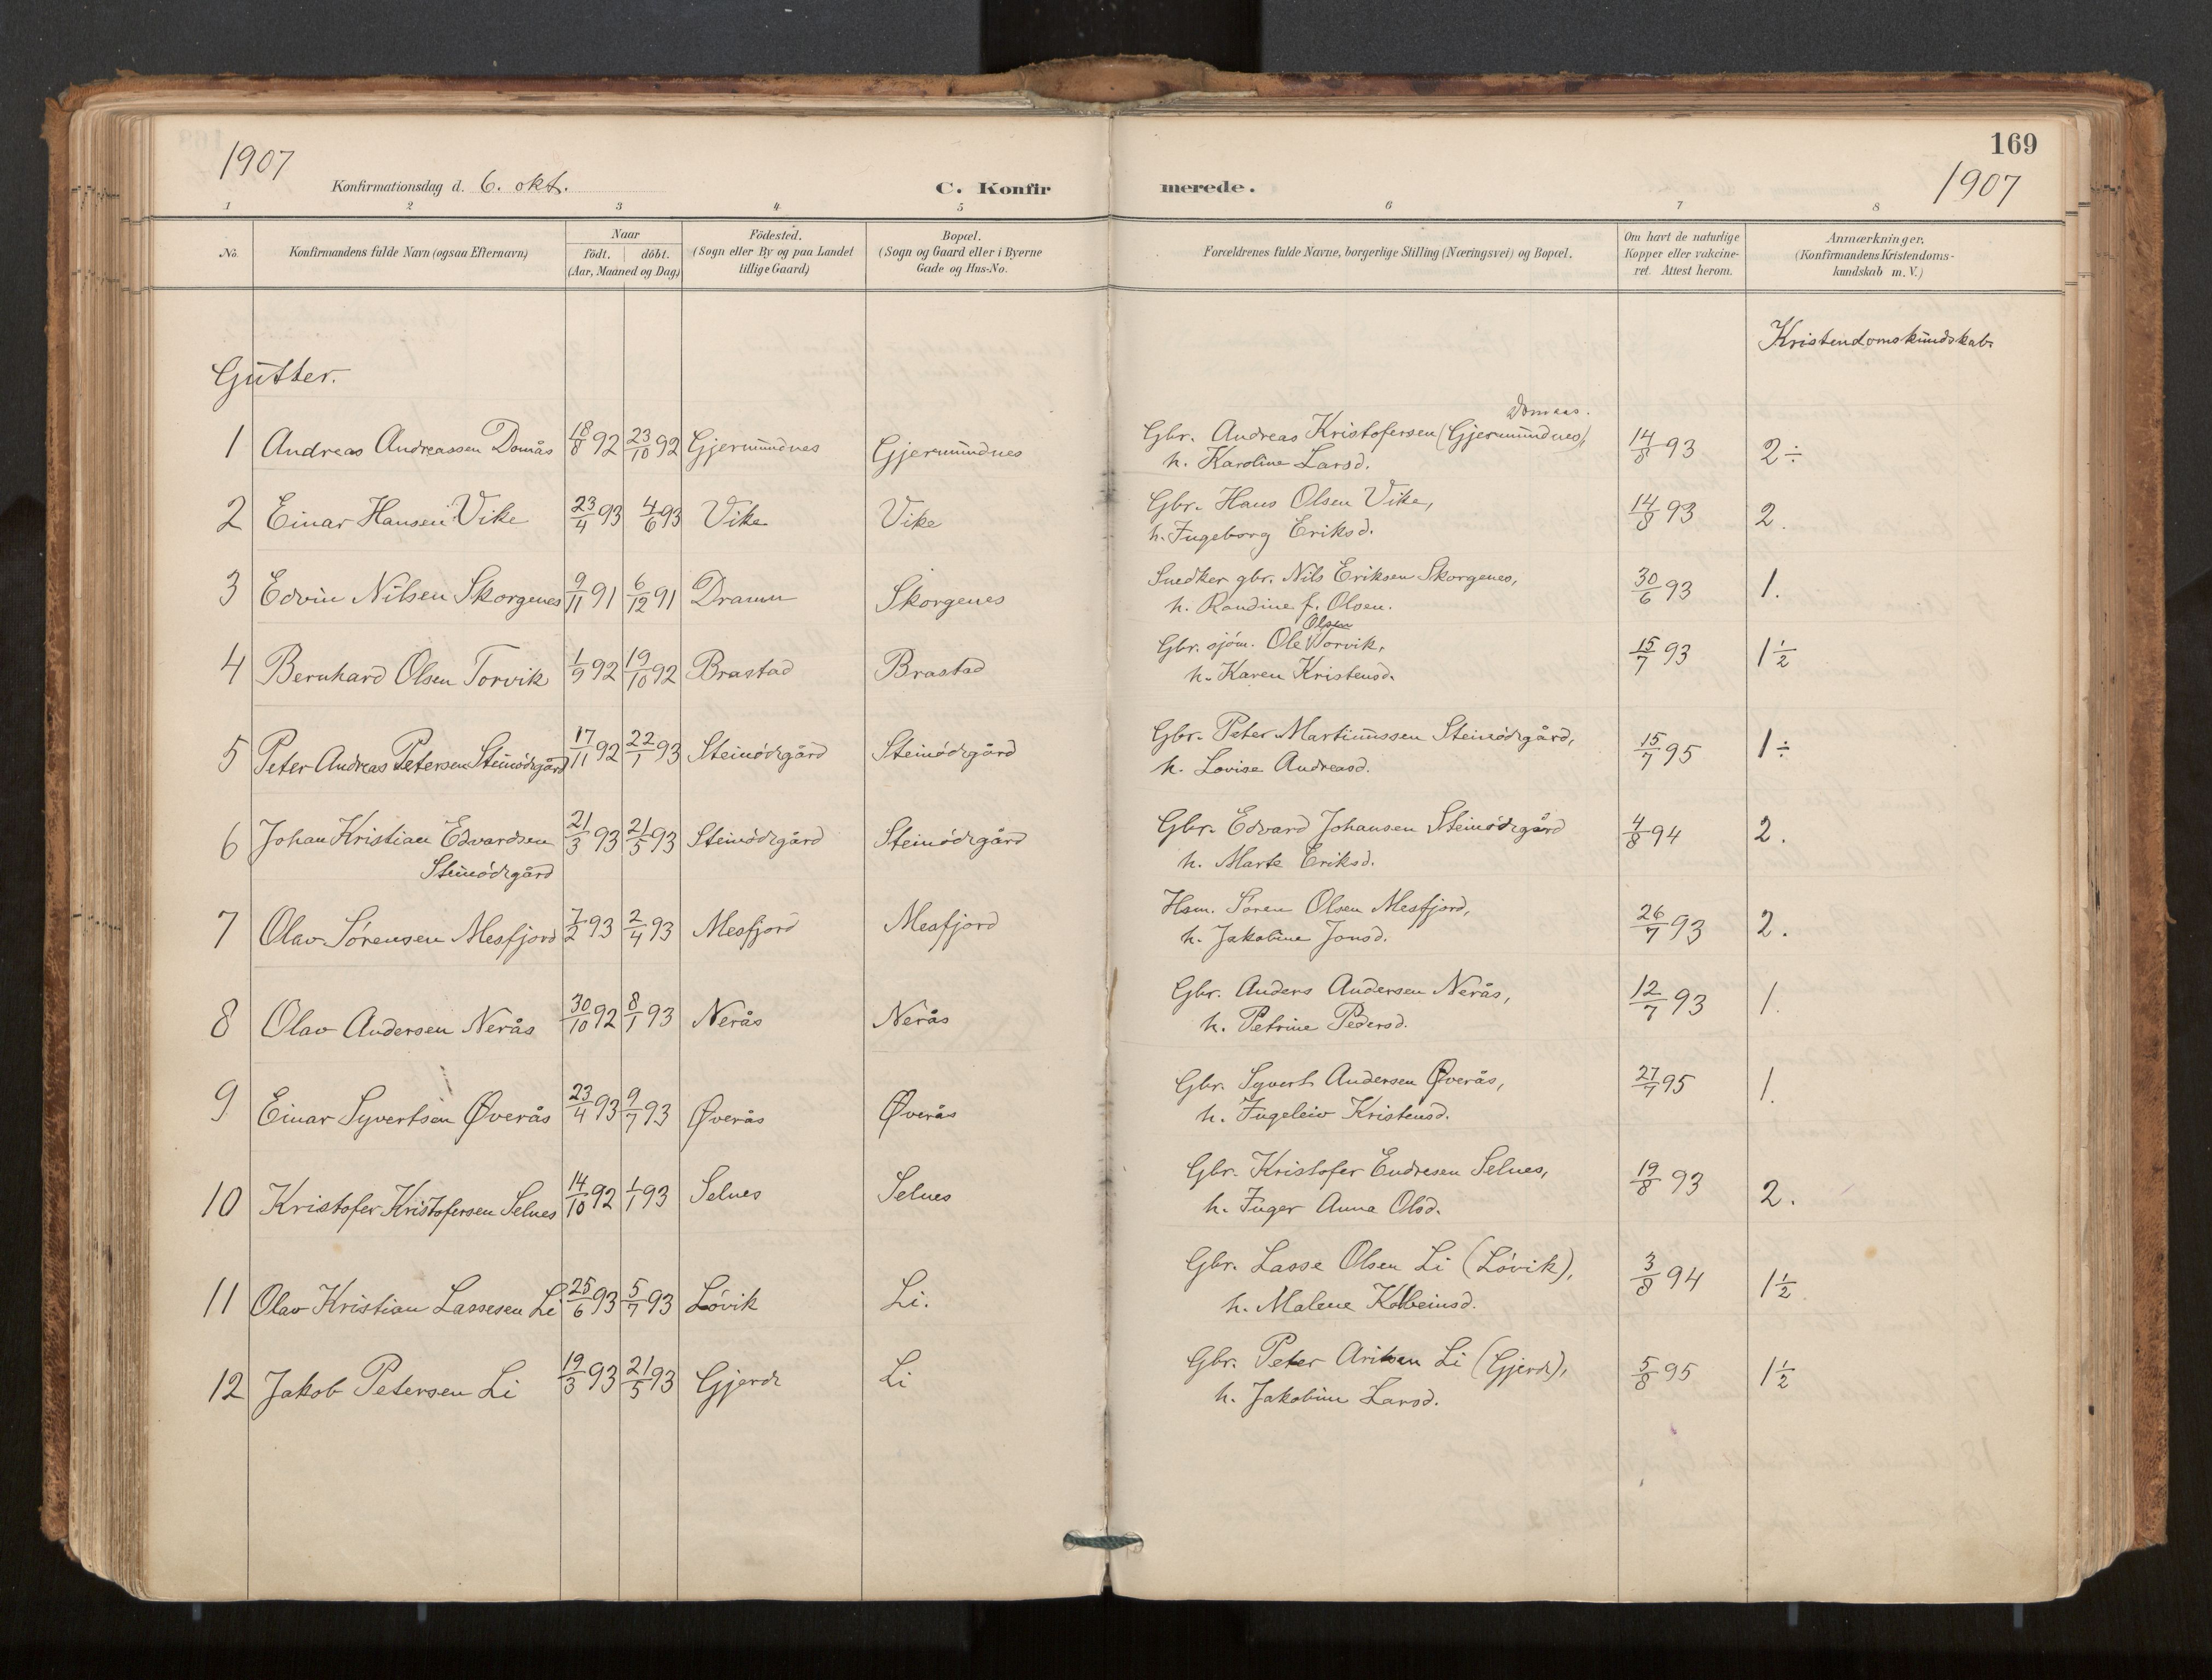 169
1907
Konfirmationsdag d. 6. okt.
C. Konfirmerede.
1907
1 2 3 4 5 6 7 8
No.
Konfirmandens fulde Navn (ogsaa Efternavn)
Naar
födt. döbt.
(Aar, Maaned og Dag)
Födested.
(Sogn eller By og paa Landet
tillige Gaard)
Bopæl.
(Sogn og Gaard eller i Byerne
Gade og Hus-No.
Forældrenes fulde Navne, borgerlige Stilling (Næringsvei) og Bopæl.
Om havt de naturlige
Kopper eller vaksine-
ret. Attest herom.
Anmærkninger.
(Konfirmandens Kristendoms-
kundskab m. V.)
Kristendomskundskab.
Gutter.
Domaas.
1 Andreas Andreassen Domås 18/8 92 23/10 92 Gjermundnes Gjermundnes Gbr. Andreas Kristofersen (Gjermundnes), 14/8 93 2÷
h. Karoline Larsd.
2 Einar Hansen Vike 23/4 93 4/6 93 Vike Vike Gbr. Hans Olsen Vike, 14/8 93 2.
h. Ingeborg Eriksd.
3 Edvin Nilsen Skorgenes 9/11 91 6/12 91 Dramn Skorgenes Snedker gbr. Nils Eriksen Skorgenes, 30/6 93 1.
h. Randine f. Olsen.
Olsen
4 Bernhard Olsen Torvik 1/9 92 19/10 92 Brastad Brastad Gbr. sjöm. Ole Torvik, 15/7 93 1 1/2
h. Karen Kristensd.
5 Peter Andreas Petersen Steinödegård 17/11 92 22/1 93 Steinödegård Steinödegård Gbr. Peter Martinussen Steinödegård, 15/7 95 1÷
h. Lovise Andreasd.
6 Johan Kristian Edvardsen 21/3 93 21/5 93 Steinödegård Steinödegård Gbr. Edvard Johansen Steinödegård 4/8 94 2.
Steinödegård h. Marte Eriksd.
7 Olav Sörensen Mesfjord 7/2 93 2/4 93 Mesfjord Mesfjord Hsm. Sören Olsen Mesfjord, 26/7 93 2.
h. Jakobine Jonsd.
8 Olav Andersen Nerås 30/10 92 8/1 93 Nerås Nerås Gbr. Anders Andersen Nerås, 12/7 93 1.
h. Petrine Pedersd.
9 Einar Syvertsen Øverås 23/4 93 9/7 93 Øverås Øverås Gbr. Syvert Andersen Øverås, 27/7 95 1.
h. Ingeleiv Kristensd.
10 Kristofer Kristofersen Selnes 14/10 92 1/1 93 Selnes Selnes Gbr. Kristofer Endresen Selnes, 19/8 93 2.
h. Inger Anna Olsd.
11 Olav Kristian Lassesen Li 25/6 93 5/7 93 Lövik Li. Gbr. Lasse Olsen Li (Lövik), 3/8 94 1 1/2
h. Malene Kolbeinsd.
12 Jakob Petersen Li 19/3 93 21/5 93 Gjerde Li Gbr. Peter Li (Gjerde), 5/8 95 1 1/2
h. Jakobine Larsd.